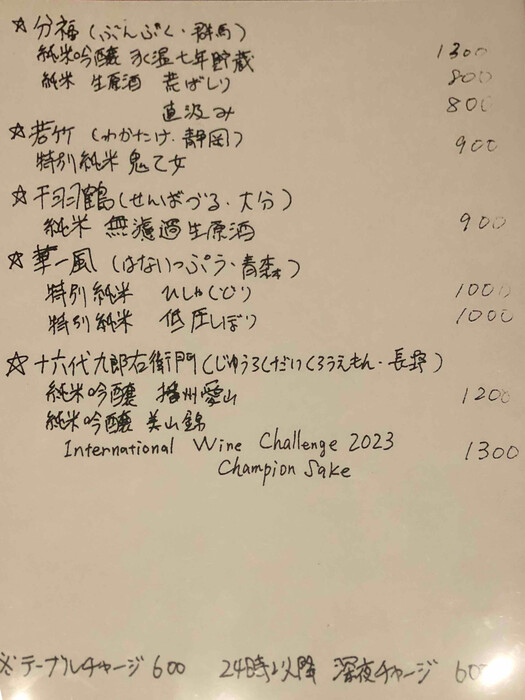 ☆分福(ぶんぶく・群馬)
純米吟醸 氷温七年貯蔵 1300
純米 生原酒 荒ばしり 800
直汲み 800
☆若竹(わかたけ・静岡) 900
特別純米 鬼乙女
☆千羽鶴(せんばづる・大分)
純米 無濾過生原酒 900
☆華一風(はないっぷう・青森)
特別純米 ひしゃくどり 1000
特別純米 低圧しぼり 1000
☆十六代九郎右衛門(じゅうろくだいくろうえもん・長野)
純米吟醸 播州愛山 1200
純米吟醸 美山錦
International Wine Challenge 2023 1300
Champion Sake
※テーブルチャージ 600 24時以降 深夜チャージ 600